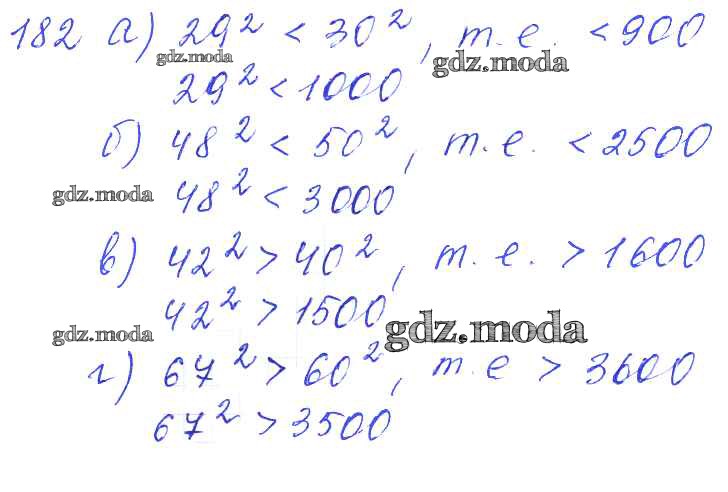 182 а) 29² < 30², т.е. < 900
gdz.moda gdz.moda
29² < 1000
б) 48² < 50², т.е. < 2500
gdz.moda
48² < 3000
в) 42² > 40², т.е. > 1600
42² > 1500
gdz.moda gdz.moda
г) 67² > 60², т.е > 3600
67² > 3500